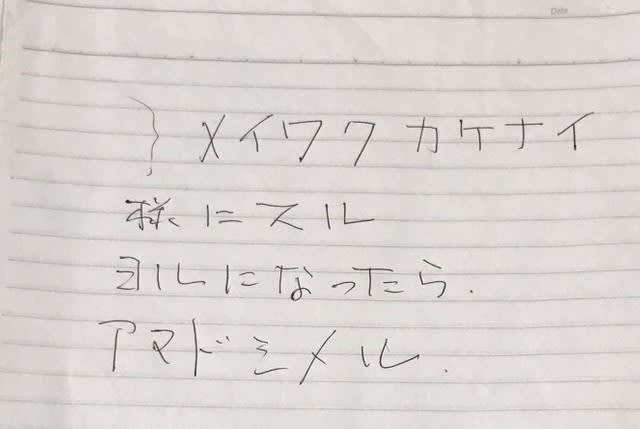 Date
} メイワクカケナイ
様にスル
ヨルになったら.
アマドシメル.